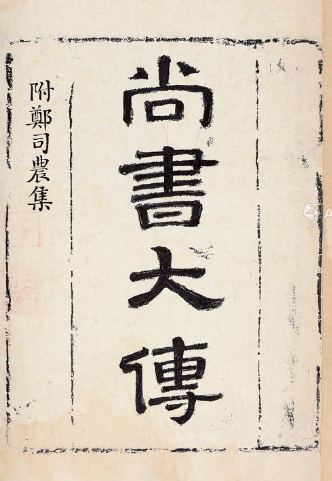 尚書大傳
附鄭司農集